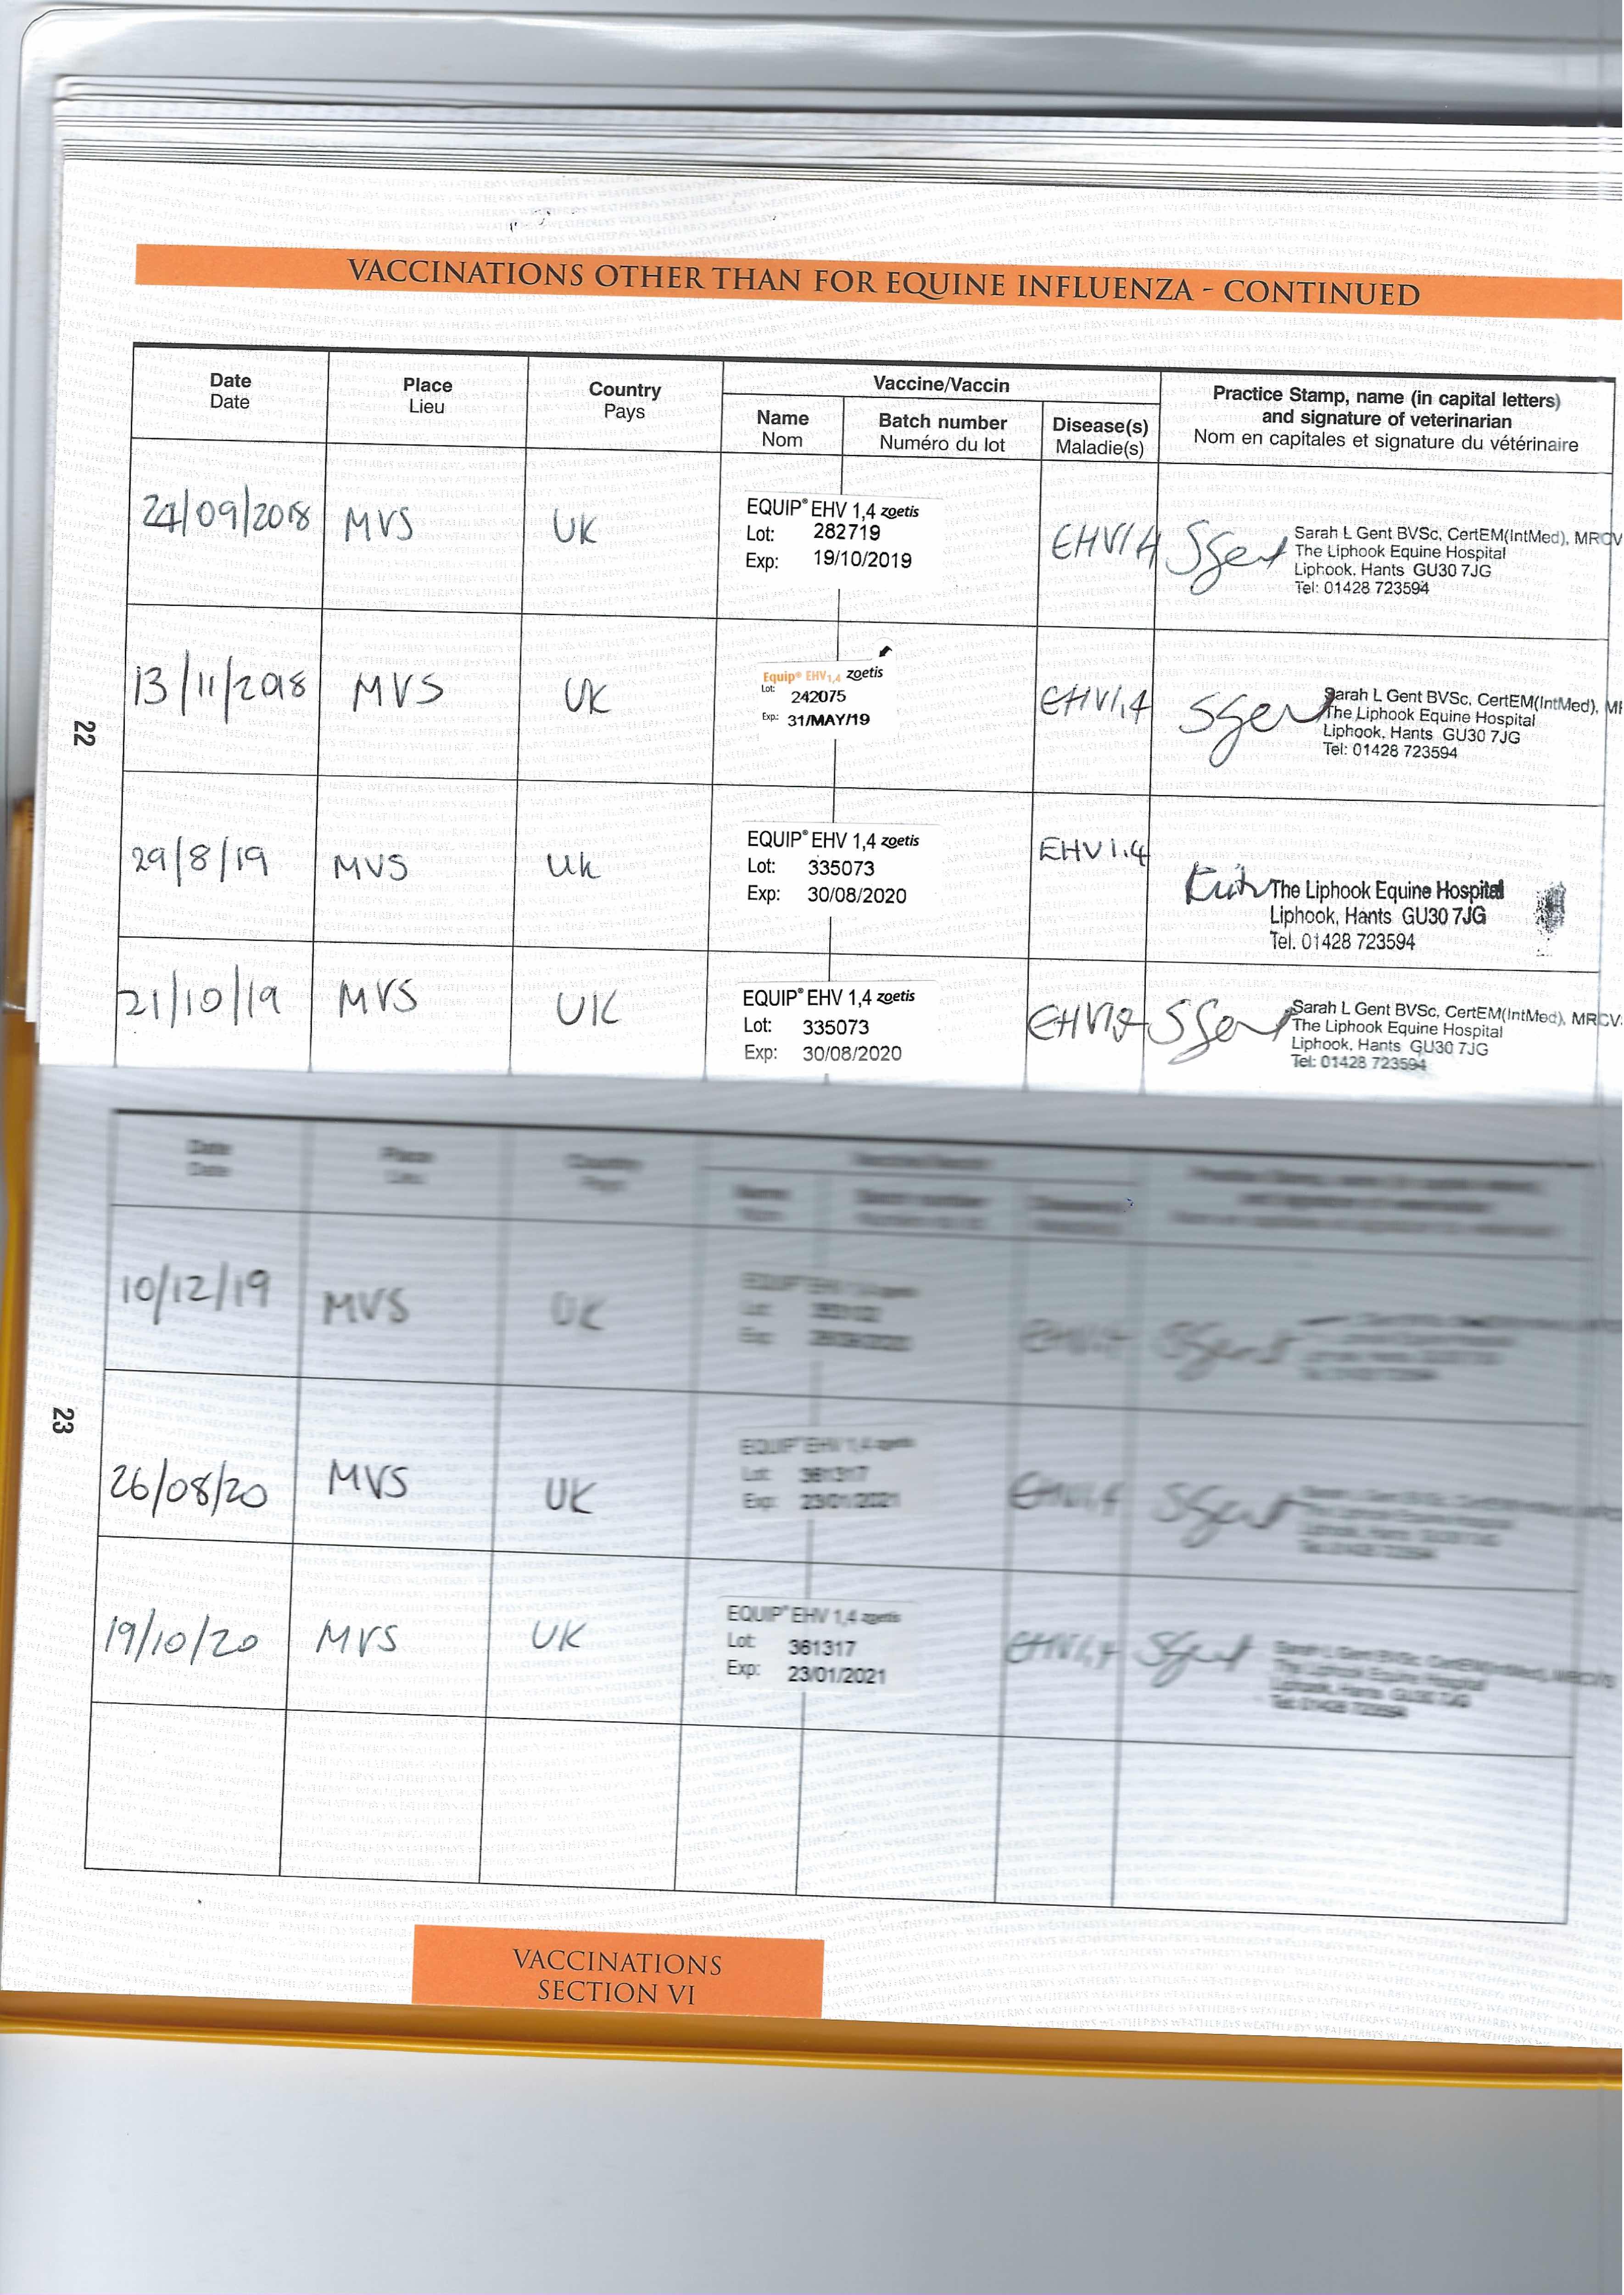 VACCINATIONS OTHER THAN FOR EQUINE INFLUENZA - CONTINUED
Date
Date
Place
Lieu
Country
Pays
Vaccine/Vaccin
Name
Nom
Batch number
Numéro du lot
Disease(s)
Maladie(s)
Practice Stamp, name (in capital letters)
and signature of veterinarian
Nom en capitales et signature du vétérinaire
24/09/2018 MVS UK
EQUIP® EHV 1,4 zoetis
Lot: 282719
Exp: 19/10/2019
EHV1,4
SGent
Sarah L Gent BVSc, CertEM(IntMed), MRCV
The Liphook Equine Hospital
Liphook, Hants GU30 7JG
Tel: 01428 723594
13/11/2018 MVS UK
Equip® EHV1,4 zoetis
Lot: 242075
Exp: 31/MAY/19
EHV1,4
SGent
Sarah L Gent BVSc, CertEM(IntMed), MR
The Liphook Equine Hospital
Liphook, Hants GU30 7JG
Tel: 01428 723594
22
29/8/19 MVS UK
EQUIP® EHV 1,4 zoetis
Lot: 335073
Exp: 30/08/2020
EHV1,4
The Liphook Equine Hospital
Liphook, Hants GU30 7JG
Tel. 01428 723594
21/10/19 MVS UK
EQUIP® EHV 1,4 zoetis
Lot: 335073
Exp: 30/08/2020
SGent
Sarah L Gent BVSc, CertEM(IntMed), MRCV
The Liphook Equine Hospital
Liphook, Hants GU30 7JG
Tel: 01428 723594
Date
Date
Place
Lieu
Country
Pays
Name
Nom
Batch number
10/12/19 MVS UK
EQUIP® EHV 1,4 zoetis
Lot:
Exp:
EHV1,4
SGent
23
26/08/20 MVS UK
EQUIP® EHV 1,4 zoetis
Lot: 361317
Exp: 23/01/2021
EHV1,4
SGent
Sarah L Gent BVSc, CertEM(IntMed),
The Liphook Equine Hospital
Liphook, Hants GU30 7JG
Tel: 01428 723594
19/10/20 MVS UK
EQUIP® EHV 1,4 zoetis
Lot: 361317
Exp: 23/01/2021
EHV1,4
SGent
Sarah L Gent BVSc, CertEM(IntMed), MRCVS
The Liphook Equine Hospital
Liphook, Hants GU30 7JG
Tel: 01428 723594
VACCINATIONS
SECTION VI